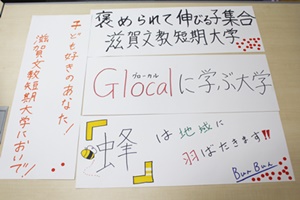 子ども好きのあなた!
滋賀文教短期大学においで!!
褒められて伸びる子集合
滋賀文教短期大学
グローカル
Glocalに学ぶ大学
蜂は地域に
羽ばたきます!!
Bun Bun